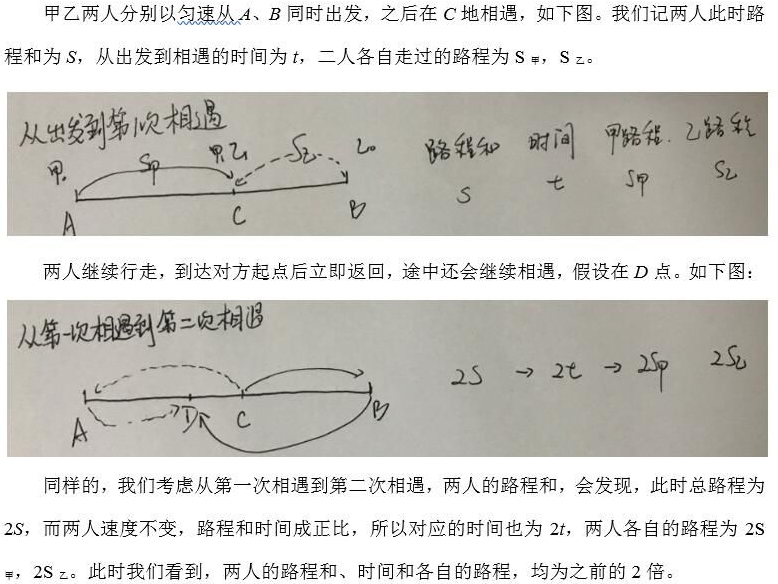 甲乙两人分别以匀速从 A、B 同时出发，之后在 C 地相遇，如下图。我们记两人此时路
程和为 S，从出发到相遇的时间为 t，二人各自走过的路程为 S 甲，S 乙。
从出发到第1次相遇
甲 S甲 甲乙 S乙 乙
路程和 时间 甲路程 乙路程
S t S甲 S乙
A C B
两人继续行走，到达对方起点后立即返回，途中还会继续相遇，假设在 D 点。如下图：
从第一次相遇到第二次相遇
2S → 2t → 2S甲 2S乙
A D C B
同样的，我们考虑从第一次相遇到第二次相遇，两人的路程和，会发现，此时总路程为
2S，而两人速度不变，路程和时间成正比，所以对应的时间也为 2t，两人各自的路程为 2S
甲，2S 乙。此时我们看到，两人的路程和、时间和各自的路程，均为之前的 2 倍。